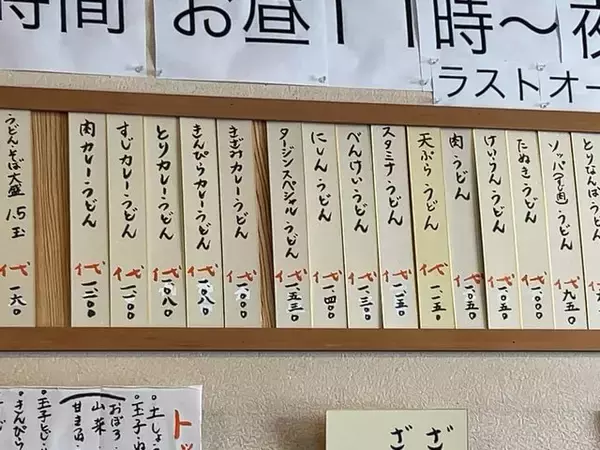 時間 お昼11時〜夜
ラストオー
とりなんばうどん 代
ソッパ(馬肉)うどん 代九五〇
たぬきうどん 代一、〇〇〇
けいらんうどん 代一、〇五〇
肉うどん 代一、〇五〇
天ぷらうどん 代一、一五〇
スタミナうどん 代一、二五〇
べんけいうどん 代一、三〇〇
にしんうどん 代一、四〇〇
タージンスペシャルうどん 代一、五三〇
きざみカレーうどん 代一、〇〇〇
きんぴらカレーうどん 代一、〇八〇
とりカレーうどん 代一、〇八〇
すじカレーうどん 代一、二〇〇
肉カレーうどん 代一、二〇〇
うどん・そば大盛 1.5玉 代一六〇
ト
。土しょ
。玉子・ぬ
おぼろ
山菜
。玉子とじ
。きんぴら
ざ
ざ